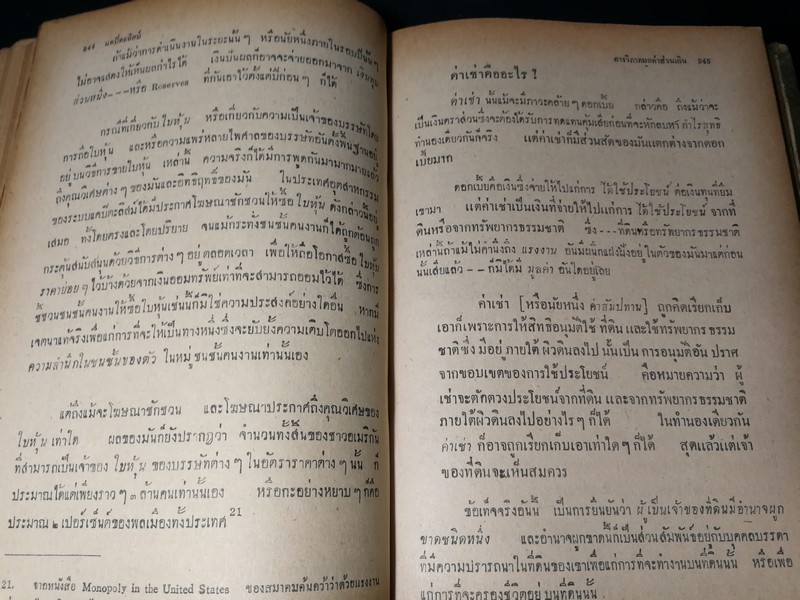 ๒๔๔ นคปิตะลิสม์
ถ้าแม้ว่าการดำเนินงานในระยะนั้น ๆ หรือนัยหนึ่งภายในรอบปีนั้น ๆ
ไม่อาจแสดงให้เห็นผลกำไรได้ เงินปันผลก็อาจจะจ่ายออกมาจาก เงินทุน
ส่วนหนึ่ง---หรือ Reserves ที่กันเอาไว้ตั้งแต่ปีก่อน ๆ ก็ได้
กรณีที่เกี่ยวกับ ใบหุ้น หรือเกี่ยวกับความเป็นเจ้าของบริษัทโดย
การถือใบหุ้น และหรือความแพร่หลายไพศาลของบริษัทอันตั้งพื้นฐานอยู่
อยู่ บนวิธีการขายใบหุ้น เหล่านั้น ความจริงก็ได้มีการพูดกันมามากมายแล้ว
ถึงคุณวิเศษต่าง ๆ ของมันและอิทธิฤทธิ์ของมัน ในประเทศอุตสาหกรรม
ของระบบแคปิตะลิสม์ได้มีประกาศโฆษณาชักชวนให้ซื้อ ใบหุ้น ดังกล่าวนี้อยู่
เสมอ ทั้งโดยตรงและโดยปริยาย จนแม้กระทั่งชนชั้นคนงานก็ได้ถูกต้อนถูก
กระตุ้นสนับสนุนด้วยวิธีการต่าง ๆ อยู่ ตลอดเวลา เพื่อให้ถือโอกาสซื้อ ใบหุ้น
ราคาย่อย ๆ ไว้บ้างด้วยจากเงินออมทรัพย์เท่าที่จะสามารถออมไว้ได้ ซึ่งการ
ชี้ชวนชนชั้นคนงานให้ซื้อใบหุ้นเช่นนั้นก็มิใช่ความประสงค์อย่างใดอื่น หากมี
เจตนาแท้จริงเพื่อแก่การที่จะให้เป็นทางหนึ่งซึ่งจะยับยั้งความเติบโตออกไปแห่ง
ความสำนึกในชนชั้นของตัว ในหมู่ ชนชั้นคนงานเท่านั้นเอง
แต่ถึงแม้จะโฆษณาชักชวน และโฆษณาประกาศถึงคุณวิเศษของ
ใบหุ้น เท่าใด ผลของมันก็ยังปรากฏว่า จำนวนทั้งสิ้นของชาวอเมริกัน
ที่สามารถเป็นเจ้าของ ใบหุ้น ของบริษัทต่าง ๆ ในอัตราราคาต่าง ๆ นั้น ก็
ประมาณได้แต่เพียงราว ๆ ๓ ล้านคนเท่านั้นเอง หรือกะอย่างหยาบ ๆ ก็คือ
ประมาณ ๒ เปอร์เซ็นต์ของพลเมืองทั้งประเทศ 21
21. จากหนังสือ Monopoly in the United States ของสมาคมค้นคว้าว่าด้วยแรงงาน
สารวิภาคมูลค่าส่วนเกิน ๒๔๕
ค่าเช่าคืออะไร ?
ค่าเช่า นั้นแม้จะมีภาวะคล้าย ๆ ดอกเบี้ย กล่าวคือ ถึงแม้ว่าจะ
เป็นเงินตราส่วนซึ่งจะต้องได้รับการทดแทนคุ้มเสียก่อนที่จะหักลบหา กำไรสุทธิ
ทำนองเดียวกันก็จริง แต่ค่าเช่าก็มีส่วนสัดของมันแตกต่างจากดอก
เบี้ยมาก
ดอกเบี้ยคือเงินซึ่งจ่ายให้ไปแก่การ ได้ใช้ประโยชน์ ต่อเงินทุนที่ยืม
เขามา แต่ค่าเช่าเป็นเงินที่จ่ายให้ไปแก่การ ได้ใช้ประโยชน์ จากที่
ดินหรือจากทรัพยากรธรรมชาติ ซึ่ง---ที่ดินหรือทรัพยากรธรรมชาติ
เหล่านี้ถ้าแม้ไม่คำนึงถึง แรงงาน อันมีผนึกแฝงฝังอยู่ ในตัวของมันมาแต่ก่อน
นั้นเสียแล้ว -- ก็มิได้มี มูลค่า อันใดอยู่เลย
ค่าเช่า [หรือนัยหนึ่ง ค่าสัมปทาน] ถูกคิดเรียกเก็บ
เอาก็เพราะการให้สิทธิอนุมัติใช้ ที่ดิน และใช้ทรัพยากร ธรรม
ชาติซึ่ง มีอยู่ ภายใต้ ผิวดินลงไป นั้นเป็น การอนุมัติอัน ปราศ
จากขอบเขตของการใช้ประโยชน์ คือหมายความว่า ผู้
เช่าจะตักตวงประโยชน์จากที่ดิน และจากทรัพยากรธรรมชาติ
ภายใต้ผิวดินลงไปอย่างไร ๆ ก็ได้ ในทำนองเดียวกัน
ค่าเช่า ก็อาจถูกเรียกเก็บเอาเท่าใด ๆ ก็ได้ สุดแล้วแต่เจ้า
ของที่ดินจะเห็นสมควร
ข้อเท็จจริงอันนี้ เป็นการยืนยันว่า ผู้เป็นเจ้าของที่ดินมีอำนาจผูก
ขาดชนิดหนึ่ง และอำนาจผูกขาดนี้ก็เป็นส่วนสัมพันธ์อยู่กับบุคคลบรรดา
ที่มีความปรารถนาในที่ดินของเขาเพื่อแก่การที่จะทำงานบนที่ดินนั้น หรือเพื่อ
แก่การที่จะครองชีวิตอยู่ บนที่ดินนั้น